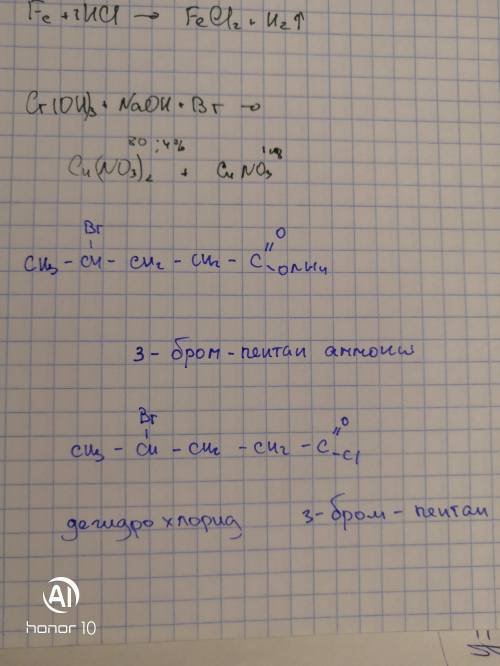 Fe + 2HCl → FeCl₂ + H₂↑
Cr(OH)₃ + NaOH + Br →
Cu(NO₃)₂ + CuNO₃
Br
CH₃ - CH - CH₂ - CH₂ - C
O
3 - бром - пентан аммония
Br
CH₃ - CH - CH₂ - CH₂ - C - Cl
O
дегидрохлорид 3 - бром - пентан
AI
honor 10